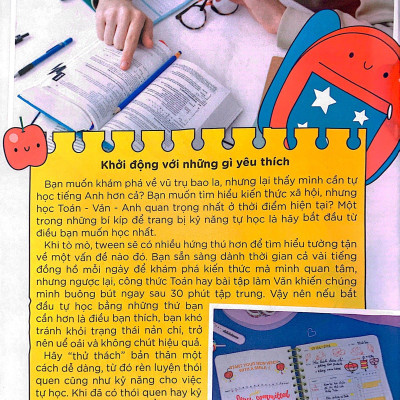 Khởi động với những gì yêu thích
Bạn muốn khám phá về vũ trụ bao la, nhưng lại thấy mình cần tự
học tiếng Anh hơn cả? Bạn muốn tìm hiểu kiến thức xã hội, nhưng
học Toán - Văn - Anh quan trọng nhất ở thời điểm hiện tại? Một
trong những bí kíp để trang bị kỹ năng tự học là hãy bắt đầu từ
điều bạn muốn học nhất.
Khi tò mò, tween sẽ có nhiều hứng thú hơn để tìm hiểu tường tận
về một vấn đề nào đó. Bạn sẵn sàng dành thời gian cả vài tiếng
đồng hồ mỗi ngày để khám phá kiến thức mà mình quan tâm,
nhưng ngược lại, công thức Toán hay bài tập làm Văn khiến chúng
mình buông bút ngay sau 30 phút tập trung. Vậy nên nếu bắt
đầu tự học bằng những thứ bạn
cần hơn là điều bạn thích, bạn khó
tránh khỏi trạng thái nản chí, trở
nên uể oải và không chút hiệu quả.
Hãy "thử thách" bản thân một
cách dễ dàng, từ đó rèn luyện thói
quen cũng như kỹ năng cho việc
tự học. Khi đã có thói quen hay kỹ